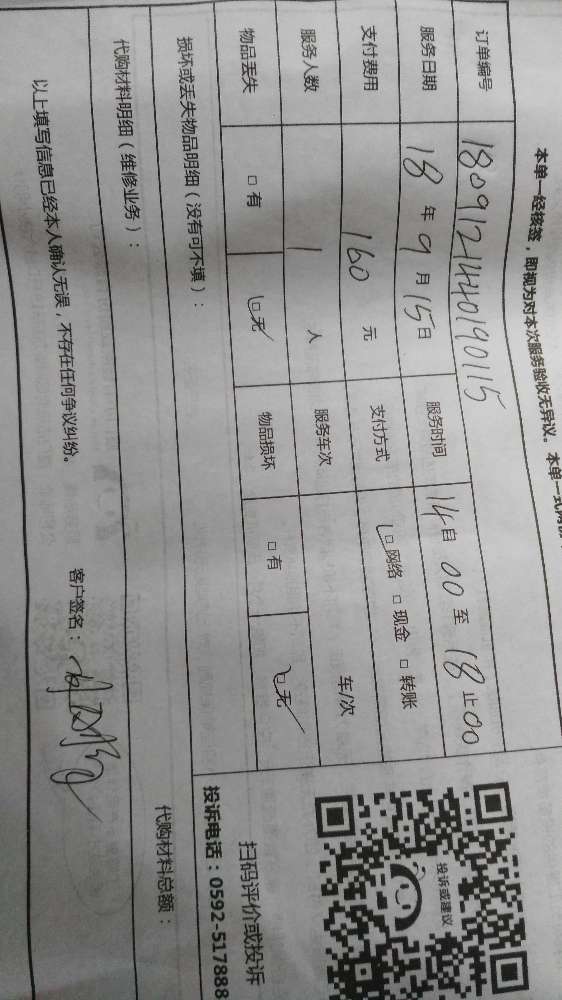 本单一经核签，即视为对本次服务验收无异议。本单一式两份
订单编号 1809121440190115
服务日期 18年9月15日 服务时间 14自00至18止00
支付费用 160元 支付方式 □网络 □现金 □转账
服务人数 1人 服务车次 车/次
物品丢失 □有 □无 物品损坏 □有 □无
损坏或丢失物品明细（没有可不填）：
代购材料明细（维修业务）： 代购材料总额：
以上填写信息已经本人确认无误，不存在任何争议纠纷。 客户签名：
投诉或建议
扫码评价或投诉
投诉电话：0592-517888